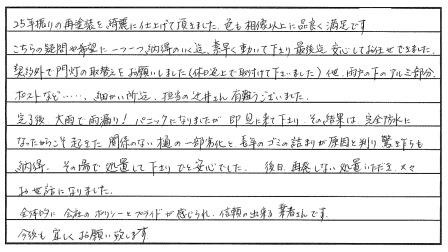 25年振りの再塗装を綺麗に仕上げて頂きました。色も想像以上に品良く満足です
こちらの疑問や希望に一つ一つ納得のいく迄、素早く動いて下さり最後迄安心してお任せできました。
契約外で門灯の取替えをお願いしました(休日返上で取付けて下さいました)他、雨戸の下のアルミ部分、
ポストなど……、細かい所迄、担当の辻井さん有難うございました。
完了後、大雨で雨漏り!パニックになりましたが即見に来て下さり、その結果は、完全防水に
なったからこそ起きた関係のない樋の一部劣化と長年のゴミの詰まりが原因と判り驚きつつも
納得。その場で処置して下さりひと安心でした。後日、再発しない処置いただき、又々
お世話になりました。
全体的に会社のポリシーとプライドが感じられ、信頼の出来る業者さんです。
今後も宜しくお願い致します。